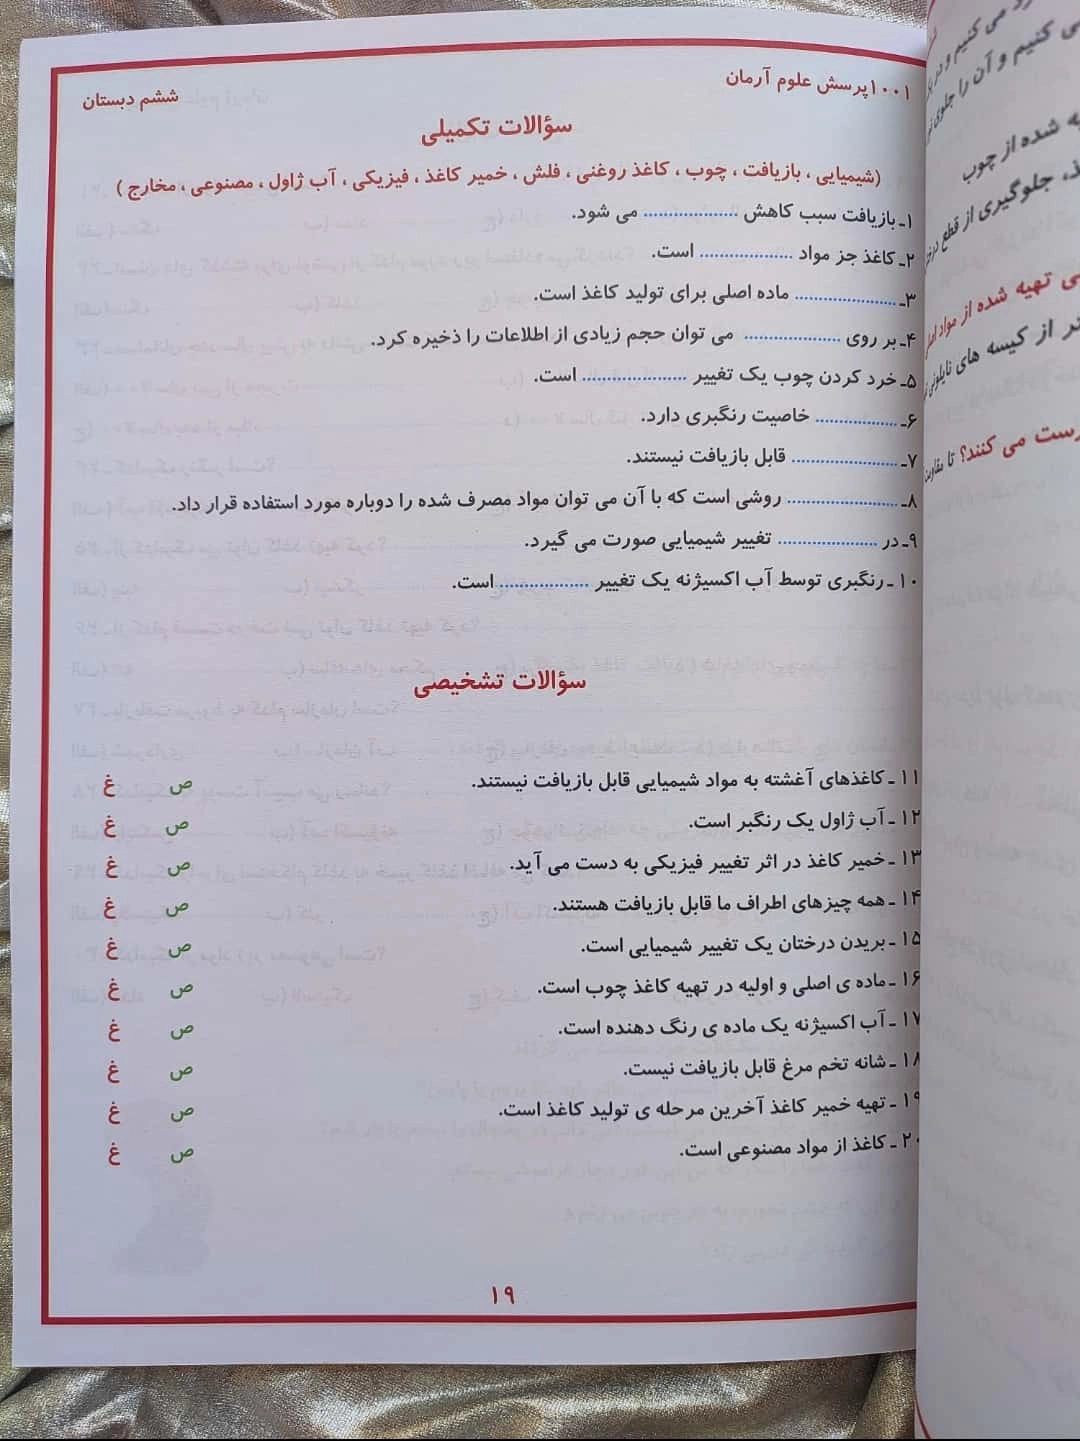 ۱۰۰۱پرسش علوم آرمان
ششم دبستان
سؤالات تکمیلی
(شیمیایی ، بازیافت ، چوب ، کاغذ روغنی ، فلش ، خمیر کاغذ ، فیزیکی ، آب ژاول ، مصنوعی ، مخارج )
۱ـ بازیافت سبب کاهش .................. می شود.
۲ـ کاغذ جز مواد .................. است.
۳ـ .................. ماده اصلی برای تولید کاغذ است.
۴ـ بر روی .................. می توان حجم زیادی از اطلاعات را ذخیره کرد.
۵ـ خرد کردن چوب یک تغییر .................. است.
۶ـ .................. خاصیت رنگبری دارد.
۷ـ .................. قابل بازیافت نیستند.
۸ـ .................. روشی است که با آن می توان مواد مصرف شده را دوباره مورد استفاده قرار داد.
۹ـ در .................. تغییر شیمیایی صورت می گیرد.
۱۰ ـ رنگبری توسط آب اکسیژنه یک تغییر .................. است.
سؤالات تشخیصی
۱۱ ـ کاغذهای آغشته به مواد شیمیایی قابل بازیافت نیستند. ص غ
۱۲ ـ آب ژاول یک رنگبر است. ص غ
۱۳ ـ خمیر کاغذ در اثر تغییر فیزیکی به دست می آید. ص غ
۱۴ ـ همه چیزهای اطراف ما قابل بازیافت هستند. ص غ
۱۵ ـ بریدن درختان یک تغییر شیمیایی است. ص غ
۱۶ ـ ماده ی اصلی و اولیه در تهیه کاغذ چوب است. ص غ
۱۷ ـ آب اکسیژنه یک ماده ی رنگ دهنده است. ص غ
۱۸ ـ شانه تخم مرغ قابل بازیافت نیست. ص غ
۱۹ ـ تهیه خمیر کاغذ آخرین مرحله ی تولید کاغذ است. ص غ
۲۰ ـ کاغذ از مواد مصنوعی است. ص غ
۱۹
می کنیم و در
کنیم و آن را جلوی
شده از چوب
جلوگیری از قطع
تهیه شده از مواد
از کیسه های نایلونی
می کنند؟ تا